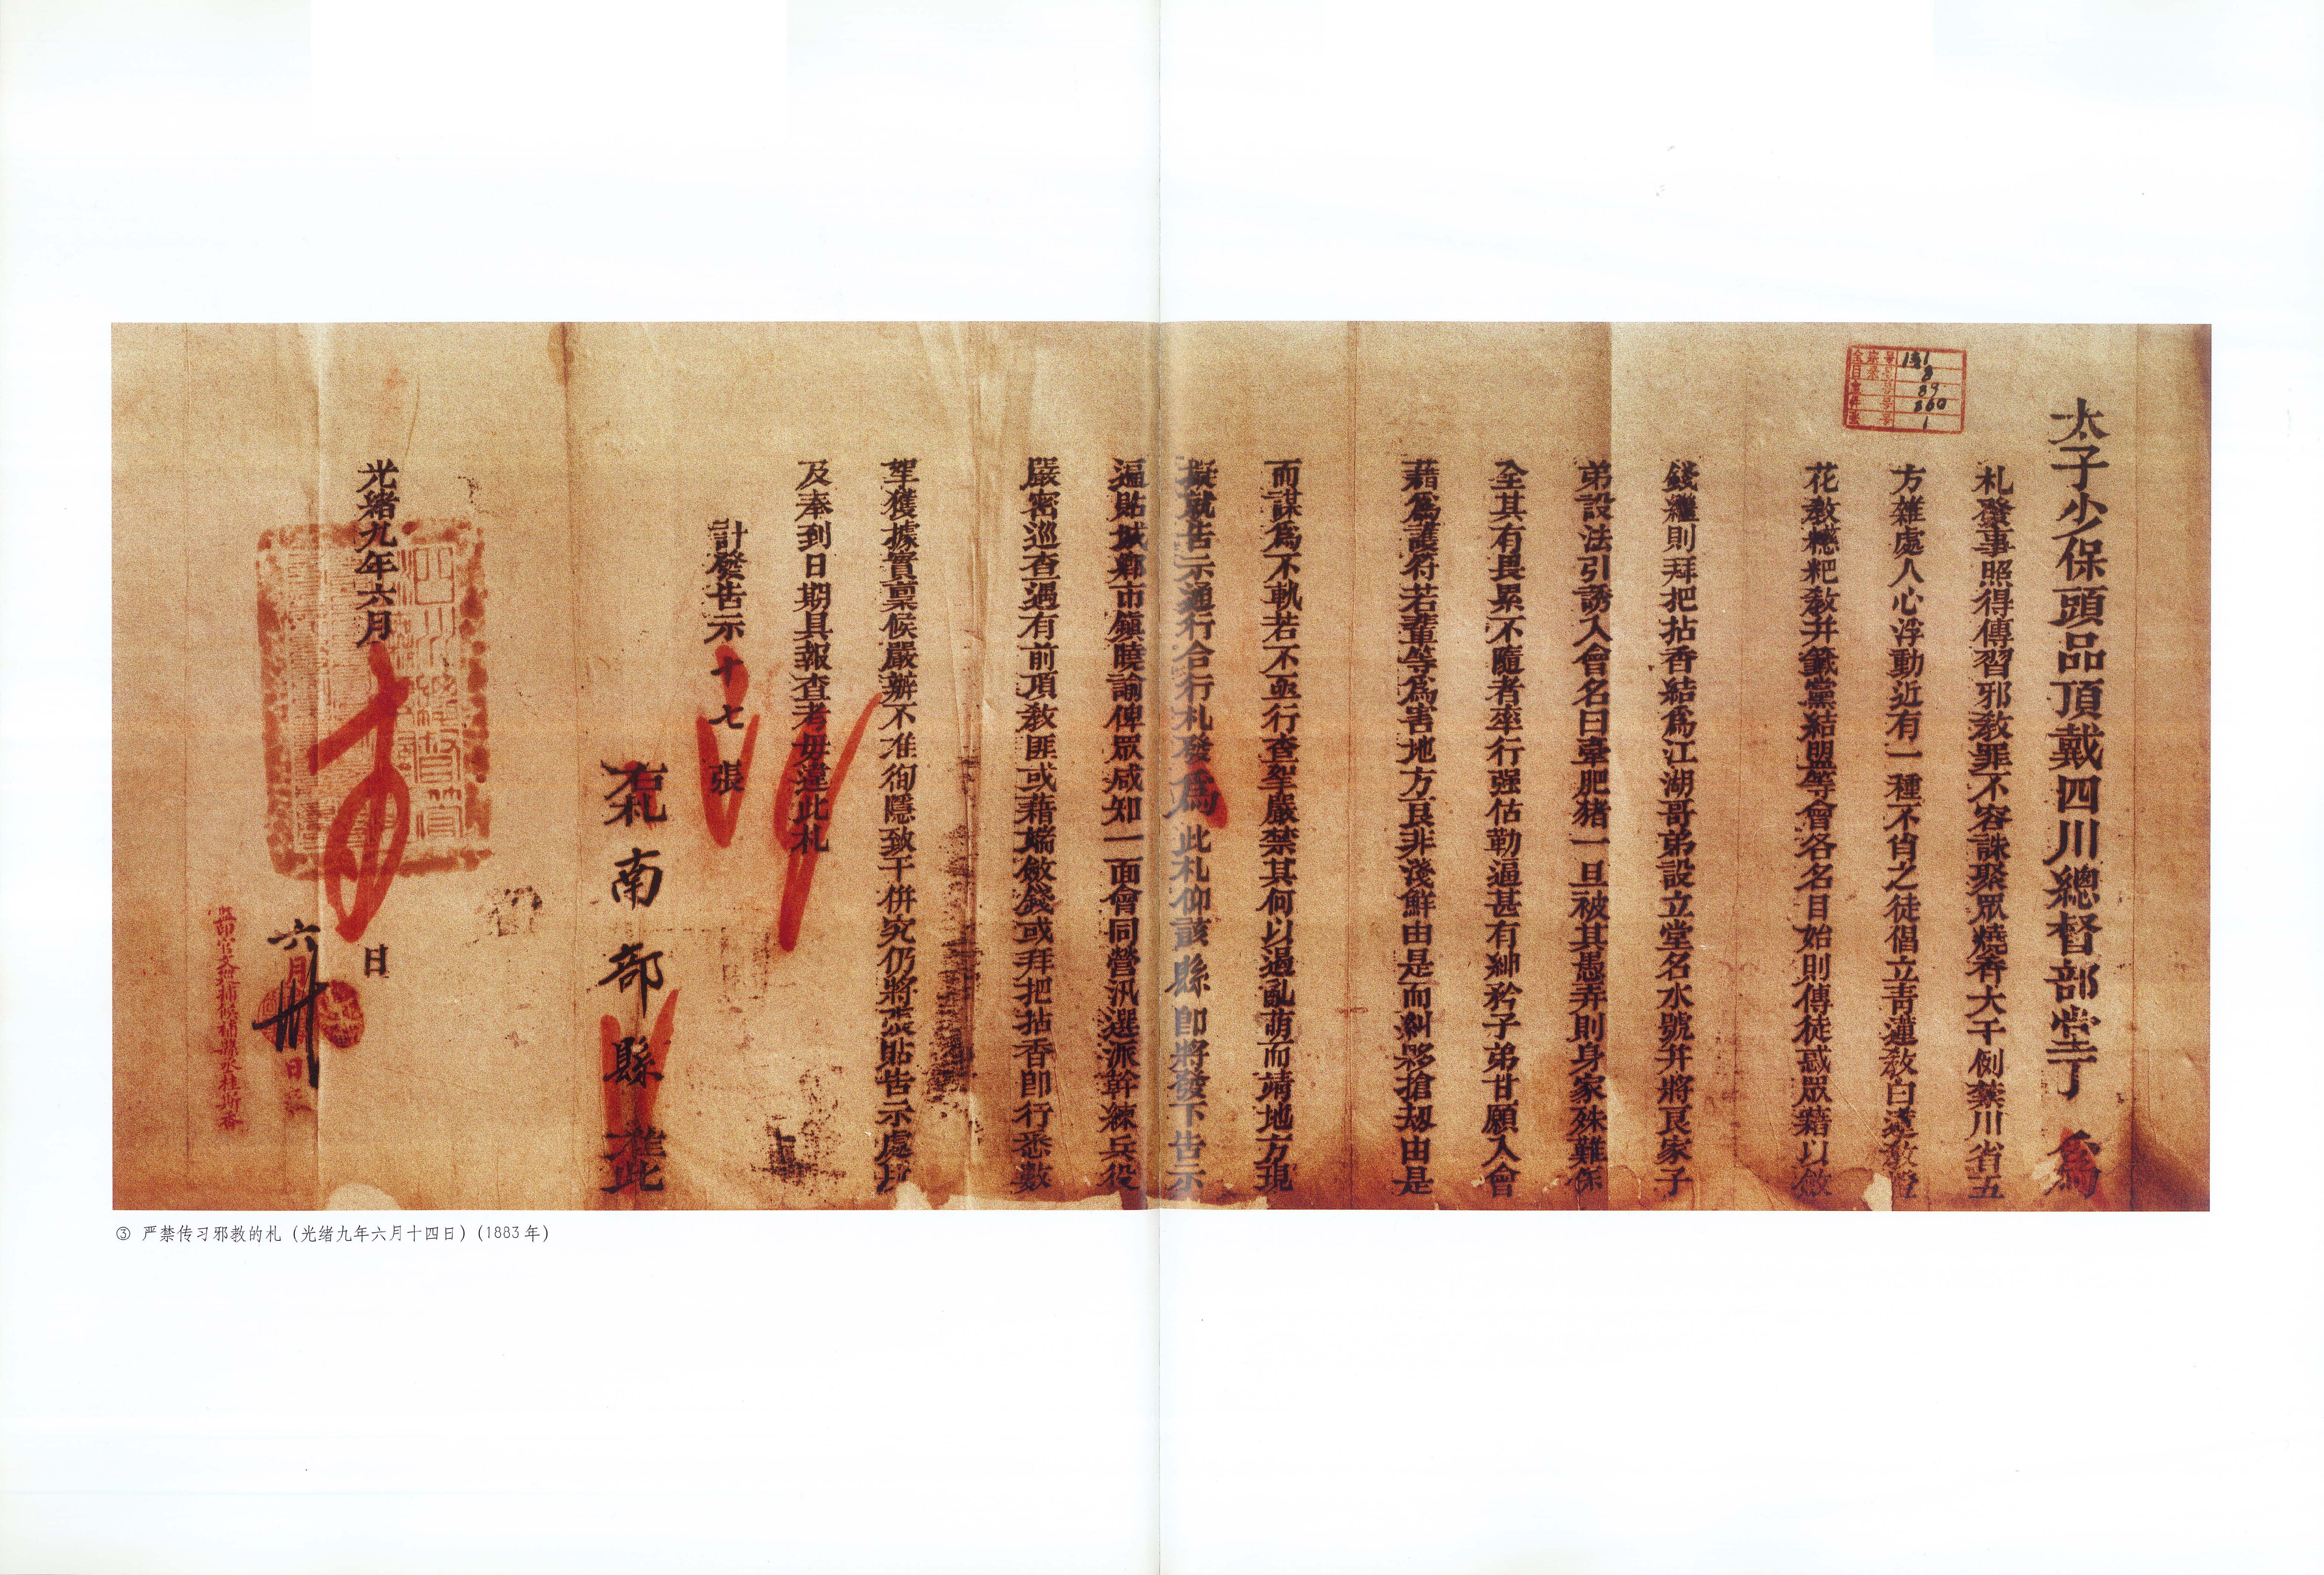 太子少保頭品頂戴四川總督部堂丁 為
札發事照得傳習邪教罪不容誅聚眾燒香大干例禁川省五
方雜處人心浮動近有一種不肖之徒倡立青蓮教白蓮教燈
花教糍粑教并籤黨結盟等會各名目始則傳徒惑眾藉以斂
錢繼則拜把拈香結爲江湖哥弟設立堂名水號并將良家子
弟設法引誘入會名曰牽肥猪一旦被其愚弄則身家殊難保
全其有畏累不隨者率行强估勒逼甚有紳衿子弟甘願入會
藉爲護符若輩等爲害地方良非淺鮮由是而糾夥搶刼由是
而謀爲不軌若不亟行查拏嚴禁其何以遏亂萌而靖地方現
擬就告示通行合行札發爲此札仰該縣即將發下告示
遍貼城鄉市鎮曉諭俾眾咸知一面會同營汛選派幹練兵役
嚴密巡查遇有前項教匪或藉端斂錢或拜把拈香即行悉數
拏獲據實稟候嚴辦不准徇隱致干併究仍將張貼告示處所
及奉到日期具報查考毋違此札
計發告示十七張
右札南部縣准此
光緒九年六月 日
六月 日
全宗号 151
目录号 8
号 89
件号 860
号 1
③ 严禁传习邪教的札（光绪九年六月十四日）（1883年）